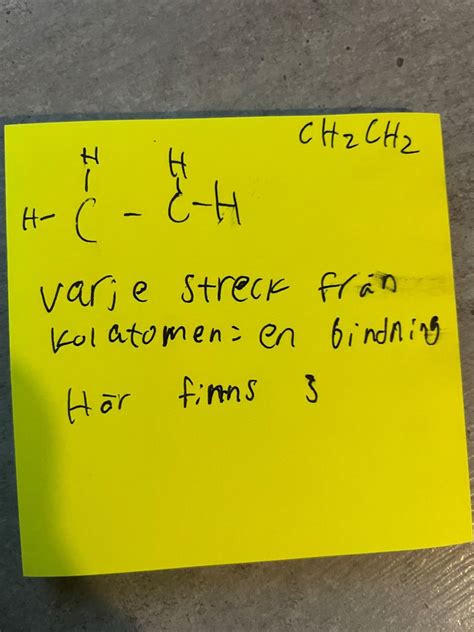 CH2CH2
H H
H- C - C-H
varje streck från
kolatomen = en bindning
Här finns 3